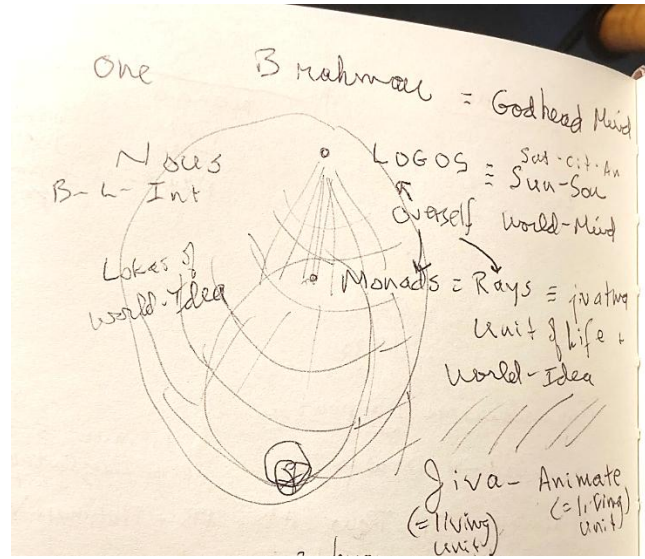 One Brahman = Godhead Mind
Nous
B-L-Int
LOGOS ≡ Sat-Cit-An
Sun-Sou
Overself World-Mind
Lokas of
World-Idea
Monads = Rays ≡ jivatma
Unit of Life +
World-Idea
Jiva - Animate
(=living unit) (=living unit)